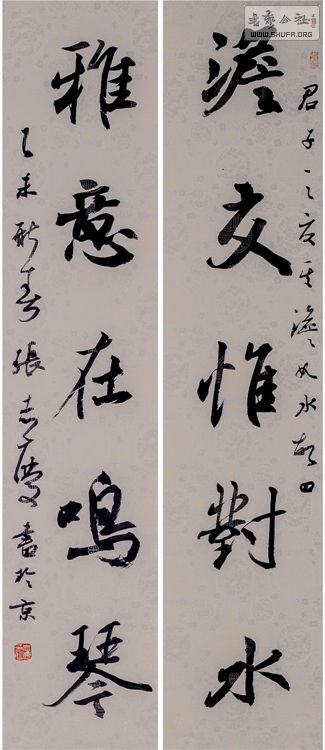 君子之交其澹如水故曰
澹交惟對水
雅意在鳴琴
乙未新春張志慶書於京
書法公社
WWW.SHUFA.ORG